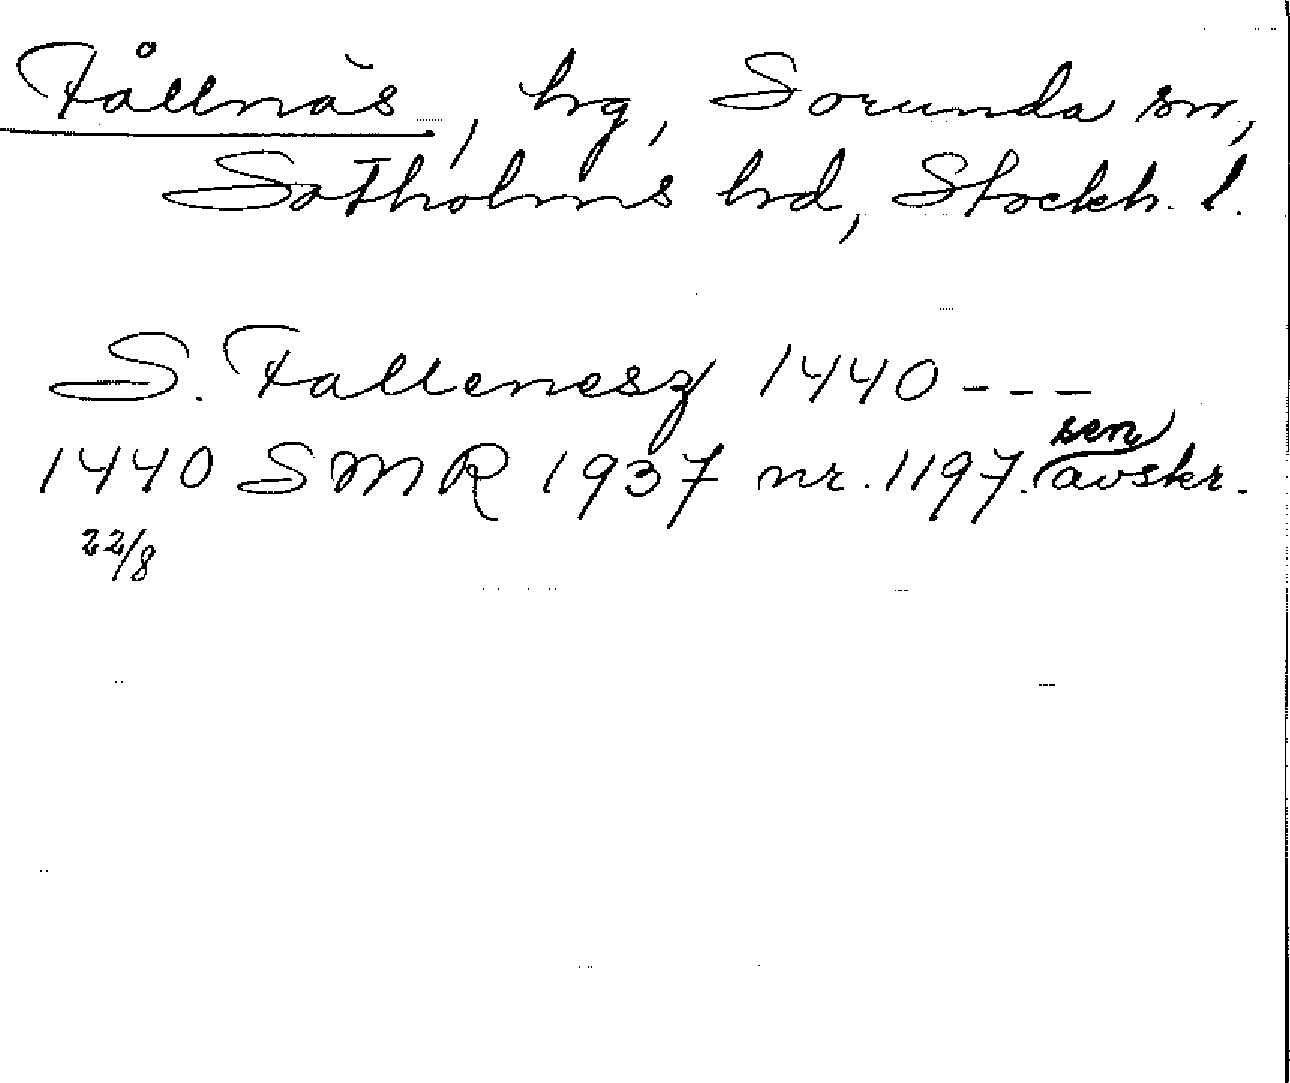 Fållnäs, hg, Sorunda sn,
Sotholms hd, Stockh. l.
S. Fallenesz 1440 - - -
1440 SMR 1937 nr. 1197. sen avskr.
22/8